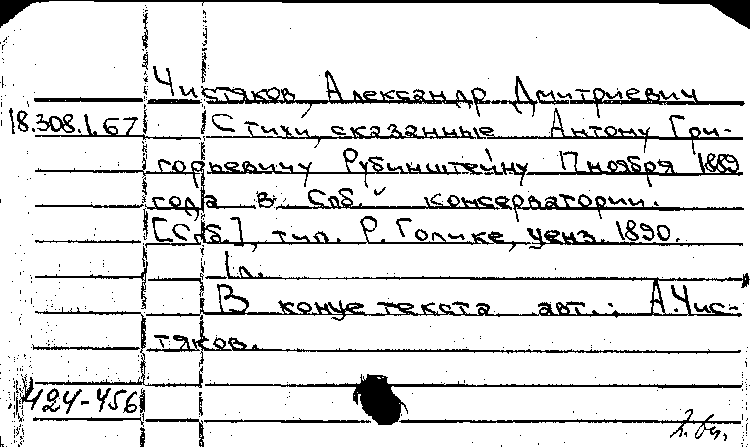 Чистяков, Александр Дмитриевич
18.308.1.67 Стихи, сказанные Антону Гри-
горьевичу Рубинштейну 17 ноября 1889
года в Спб. консерватории.
[Спб.], тип. Р. Голике, ценз. 1890.
1 л.
В конце текста авт.: А. Чис-
тяков.
424-456